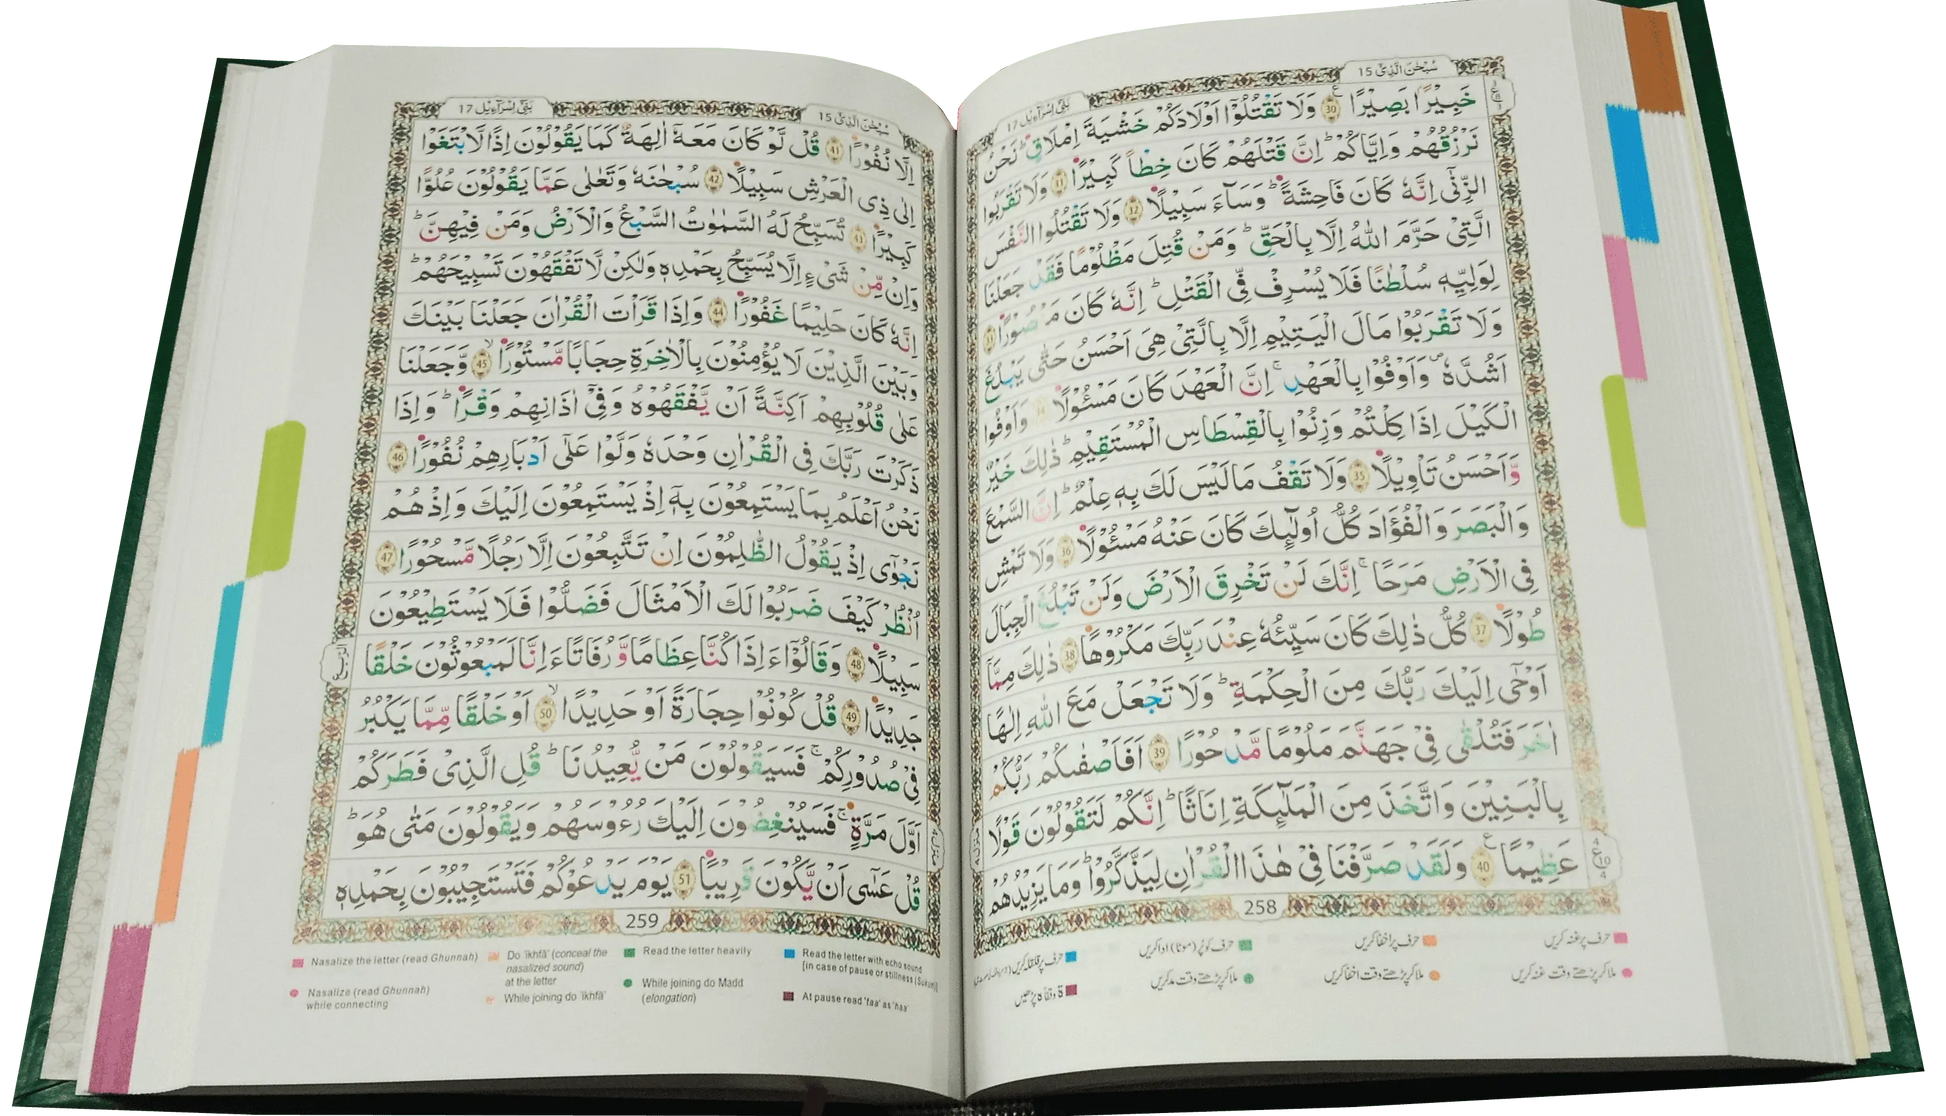 سُبْحٰنَ الَّذِىْٓ 15
بَنِىْٓ اِسْرَآءِيْل 17
خَبِيْرًۢا بَصِيْرًا ۝30 وَلَا تَقْتُلُوْٓا اَوْلَادَكُمْ خَشْيَةَ اِمْلَاقٍ ؕ نَحْنُ
نَرْزُقُهُمْ وَاِيَّاكُمْ ؕ اِنَّ قَتْلَهُمْ كَانَ خِطْاً كَبِيْرًا ۝31 وَلَا تَقْرَبُوا
الزِّنٰٓى اِنَّهٗ كَانَ فَاحِشَةً ؕ وَسَآءَ سَبِيْلًا ۝32 وَلَا تَقْتُلُوا النَّفْسَ
الَّتِىْ حَرَّمَ اللّٰهُ اِلَّا بِالْحَقِّ ؕ وَمَنْ قُتِلَ مَظْلُوْمًا فَقَدْ جَعَلْنَا
لِوَلِيِّهٖ سُلْطٰنًا فَلَا يُسْرِفْ فِّى الْقَتْلِ ؕ اِنَّهٗ كَانَ مَنْصُوْرًا ۝33
وَلَا تَقْرَبُوْا مَالَ الْيَتِيْمِ اِلَّا بِالَّتِىْ هِىَ اَحْسَنُ حَتّٰى يَبْلُغَ
اَشُدَّهٗ ۖ وَاَوْفُوْا بِالْعَهْدِ ۚ اِنَّ الْعَهْدَ كَانَ مَسْئُوْلًا ۝34 وَاَوْفُوا
الْكَيْلَ اِذَا كِلْتُمْ وَزِنُوْا بِالْقِسْطَاسِ الْمُسْتَقِيْمِ ؕ ذٰلِكَ خَيْرٌ
وَّاَحْسَنُ تَاْوِيْلًا ۝35 وَلَا تَقْفُ مَا لَيْسَ لَكَ بِهٖ عِلْمٌ ؕ اِنَّ السَّمْعَ
وَالْبَصَرَ وَالْفُؤَادَ كُلُّ اُولٰٓئِكَ كَانَ عَنْهُ مَسْئُوْلًا ۝36 وَلَا تَمْشِ
فِى الْاَرْضِ مَرَحًا ۚ اِنَّكَ لَنْ تَخْرِقَ الْاَرْضَ وَلَنْ تَبْلُغَ الْجِبَالَ
طُوْلًا ۝37 كُلُّ ذٰلِكَ كَانَ سَيِّئُهٗ عِنْدَ رَبِّكَ مَكْرُوْهًا ۝38 ذٰلِكَ مِمَّآ
اَوْحٰٓى اِلَيْكَ رَبُّكَ مِنَ الْحِكْمَةِ ؕ وَلَا تَجْعَلْ مَعَ اللّٰهِ اِلٰهًا
اٰخَرَ فَتُلْقٰى فِىْ جَهَنَّمَ مَلُوْمًا مَّدْحُوْرًا ۝39 اَفَاَصْفٰىكُمْ رَبُّكُمْ
بِالْبَنِيْنَ وَاتَّخَذَ مِنَ الْمَلٰٓئِكَةِ اِنَاثًا ؕ اِنَّكُمْ لَتَقُوْلُوْنَ قَوْلًا
عَظِيْمًا ۝40 وَلَقَدْ صَرَّفْنَا فِىْ هٰذَا الْقُرْاٰنِ لِيَذَّكَّرُوْا ؕ وَمَا يَزِيْدُهُمْ
258
حرف پر غنہ کریں
حرف پر اخفا کریں
حرف کو پُر (موٹا) ادا کریں
حرف پر قلقلہ کریں
ملا کر پڑھتے وقت غنہ کریں
ملا کر پڑھتے وقت اخفا کریں
ملا کر پڑھتے وقت مد کریں
ۃ وقفاً ہ پڑھیں
سُبْحٰنَ الَّذِىْٓ 15
بَنِىْٓ اِسْرَآءِيْل 17
اِلَّا نُفُوْرًا ۝41 قُلْ لَّوْ كَانَ مَعَهٗٓ اٰلِهَةٌ كَمَا يَقُوْلُوْنَ اِذًا لَّابْتَغَوْا
اِلٰى ذِى الْعَرْشِ سَبِيْلًا ۝42 سُبْحٰنَهٗ وَتَعٰلٰى عَمَّا يَقُوْلُوْنَ عُلُوًّا
كَبِيْرًا ۝43 تُسَبِّحُ لَهُ السَّمٰوٰتُ السَّبْعُ وَالْاَرْضُ وَمَنْ فِيْهِنَّ ؕ
وَاِنْ مِّنْ شَىْءٍ اِلَّا يُسَبِّحُ بِحَمْدِهٖ وَلٰكِنْ لَّا تَفْقَهُوْنَ تَسْبِيْحَهُمْ ؕ
اِنَّهٗ كَانَ حَلِيْمًا غَفُوْرًا ۝44 وَاِذَا قَرَاْتَ الْقُرْاٰنَ جَعَلْنَا بَيْنَكَ
وَبَيْنَ الَّذِيْنَ لَا يُؤْمِنُوْنَ بِالْاٰخِرَةِ حِجَابًا مَّسْتُوْرًا ۝45 وَّجَعَلْنَا
عَلٰى قُلُوْبِهِمْ اَكِنَّةً اَنْ يَّفْقَهُوْهُ وَفِىْٓ اٰذَانِهِمْ وَقْرًا ؕ وَاِذَا
ذَكَرْتَ رَبَّكَ فِى الْقُرْاٰنِ وَحْدَهٗ وَلَّوْا عَلٰٓى اَدْبَارِهِمْ نُفُوْرًا ۝46
نَحْنُ اَعْلَمُ بِمَا يَسْتَمِعُوْنَ بِهٖٓ اِذْ يَسْتَمِعُوْنَ اِلَيْكَ وَاِذْ هُمْ
نَجْوٰٓى اِذْ يَقُوْلُ الظّٰلِمُوْنَ اِنْ تَتَّبِعُوْنَ اِلَّا رَجُلًا مَّسْحُوْرًا ۝47
اُنْظُرْ كَيْفَ ضَرَبُوْا لَكَ الْاَمْثَالَ فَضَلُّوْا فَلَا يَسْتَطِيْعُوْنَ
سَبِيْلًا ۝48 وَقَالُوْٓا ءَاِذَا كُنَّا عِظَامًا وَّرُفَاتًا ءَاِنَّا لَمَبْعُوْثُوْنَ خَلْقًا
جَدِيْدًا ۝49 قُلْ كُوْنُوْا حِجَارَةً اَوْ حَدِيْدًا ۝50 اَوْ خَلْقًا مِّمَّا يَكْبُرُ
فِىْ صُدُوْرِكُمْ ۚ فَسَيَقُوْلُوْنَ مَنْ يُّعِيْدُنَا ؕ قُلِ الَّذِىْ فَطَرَكُمْ
اَوَّلَ مَرَّةٍ ۚ فَسَيُنْغِضُوْنَ اِلَيْكَ رُءُوْسَهُمْ وَيَقُوْلُوْنَ مَتٰى هُوَ ؕ
قُلْ عَسٰٓى اَنْ يَّكُوْنَ قَرِيْبًا ۝51 يَوْمَ يَدْعُوْكُمْ فَتَسْتَجِيْبُوْنَ بِحَمْدِهٖ
الربع
259
Nasalize the letter (read Ghunnah)
Do 'ikhfā' (conceal the nasalized sound) at the letter
Read the letter heavily
Read the letter with echo sound [in case of pause or stillness (Sukun)]
Nasalize (read Ghunnah) while connecting
While joining do 'ikhfā'
While joining do Madd (elongation)
At pause read 'taa' as 'haa'